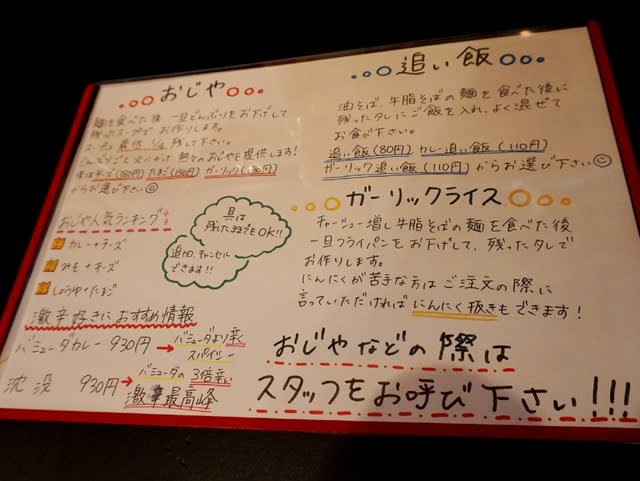 おじや
麺を食べた後、一旦どんぶりをお下げして
残ったスープでお作りします。
スープは最低 1/4 残して下さい。
どんぶりごと火にかけ、熱々のおじやを提供します!
味はチーズ(180円)たまご(130円)ガーリック(130円)
からお選び下さい
おじや人気ランキング
カレー+チーズ
みそ+チーズ
しょうゆ+たまご
具は
残したままでもOK!!
追加、キャンセル
できます!!
激辛好きにおすすめ情報
バミューダカレー 930円→バミューダより辛く
スパイシー
沈没 930円→バミューダの3倍辛い
激辛最高峰
追い飯
油そば、牛脂そばの麺を食べた後に
残ったタレにご飯を入れ、よく混ぜて
お食べ下さい。
追い飯(80円) カレー追い飯(110円)
ガーリック追い飯(110円)からお選び下さい
ガーリックライス
チャーシュー増し牛脂そばの麺を食べた後
一旦フライパンをお下げして、残ったタレで
お作りします。
にんにくが苦手な方はご注文の際に
言っていただければにんにく抜きもできます!
おじやなどの際は
スタッフをお呼び下さい!!!